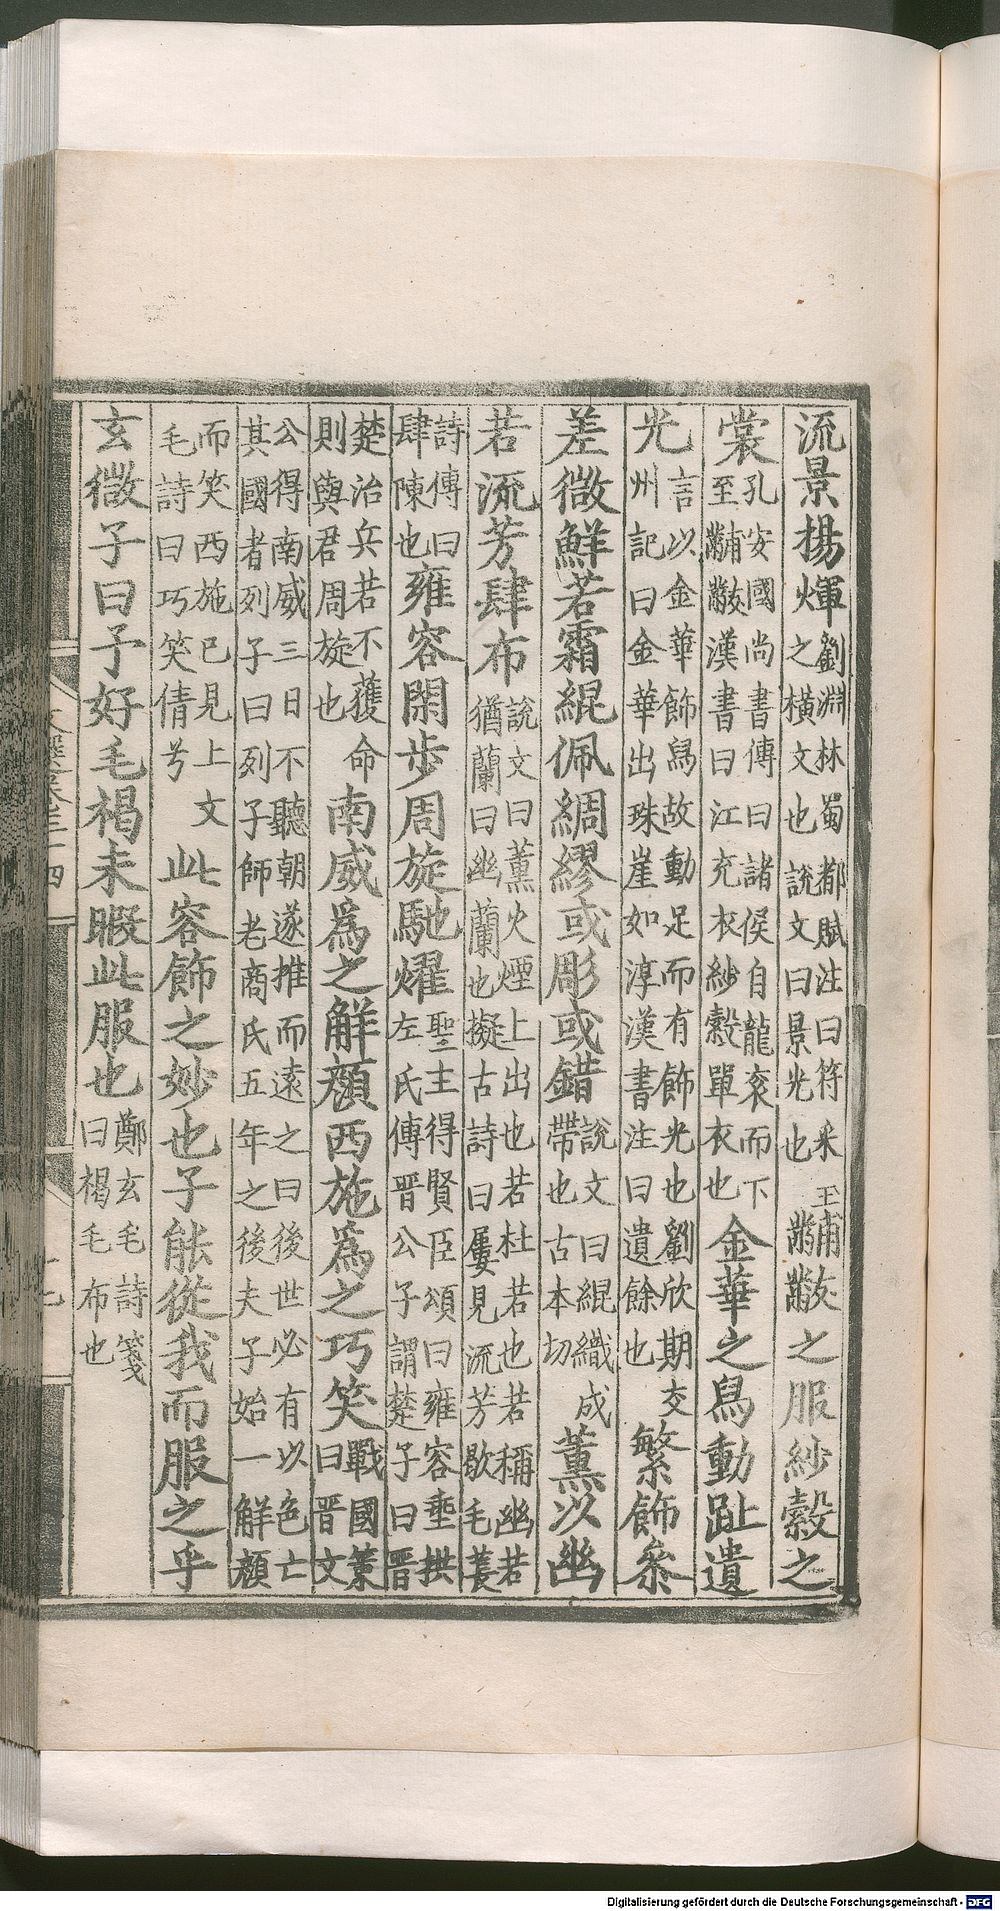 流景揚煇劉淵林蜀都賦注曰符采王之橫文也說文曰景光也黼黻之服紗縠之
裳孔安國尚書傳曰諸侯自龍衮而下至黼黻漢書曰江充衣紗縠單衣也金華之舄動趾遺
光言以金華飾舄故動足而有飾光也劉欣期交州記曰金華出珠崖如淳漢書注曰遺餘也繁飾參
差微鮮若霜緄佩綢繆或彫或錯說文曰緄織成帶也古本切薰以幽
若流芳肆布說文曰薰火煙上出也若杜若也若稱幽若猶蘭曰幽蘭也擬古詩曰屢見流芳歇毛萇
詩傳曰肆陳也雍容閑步周旋馳燿聖主得賢臣頌曰雍容垂拱左氏傳晉公子謂楚子曰晉
楚治兵若不獲命則與君周旋也南威爲之解顏西施爲之巧笑戰國策曰晉文
公得南威三日不聽朝遂推而遠之曰後世必有以色亡其國者列子曰列子師老商氏五年之後夫子始一解顏
而笑西施已見上文毛詩曰巧笑倩兮此容飾之妙也子能從我而服之乎
玄微子曰予好毛褐未暇此服也鄭玄毛詩箋曰褐毛布也
Digitalisierung gefördert durch die Deutsche Forschungsgemeinschaft - DFG